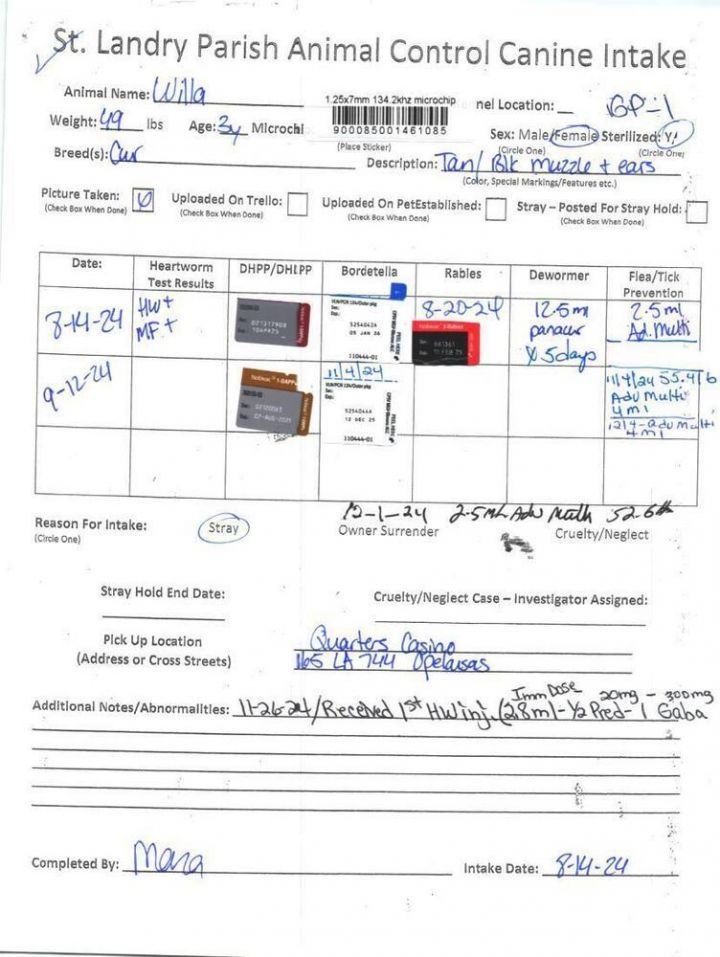 St. Landry Parish Animal Control Canine Intake
Animal Name: Willa
1.25x7mm 134.2khz microchip
nel Location: GP-1
Weight: 49 lbs Age: 3y Microchi
900085001461085
Sex: Male/Female Sterilized: Y/
(Place Sticker)
(Circle One) (Circle One)
Breed(s): Cur Description: Tan/ Blk muzzle + ears
(Color, Special Markings/Features etc.)
Picture Taken: Uploaded On Trello: Uploaded On PetEstablished: Stray – Posted For Stray Hold:
(Check Box When Done) (Check Box When Done) (Check Box When Done) (Check Box When Done)
Date: Heartworm Test Results DHPP/DHLPP Bordetella Rabies Dewormer Flea/Tick Prevention
8-14-24 HW+ MF+ 8-20-24 12.5ml panacur x 5days 2.5ml Ad. Multi
05 JAN 26
110444-01
9-12-24 11/4/24 11/4/24 55.4lb Adv Multi 4ml
12 DEC 25
110444-01
12/4-Adv Multi 4ml
12-1-24 2.5ml Adv Multi 52.6
Reason For Intake: Stray Owner Surrender Cruelty/Neglect
(Circle One)
Stray Hold End Date: Cruelty/Neglect Case – Investigator Assigned:
Pick Up Location Quarters Casino
(Address or Cross Streets) 1165 LA 744 Opelousas
Imm Dose 20mg - 300mg
Additional Notes/Abnormalities: 11-26-24/Received 1st HW inj. (2.8ml - 1/2 Pred - 1 Gaba
Completed By: Mara Intake Date: 8-14-24